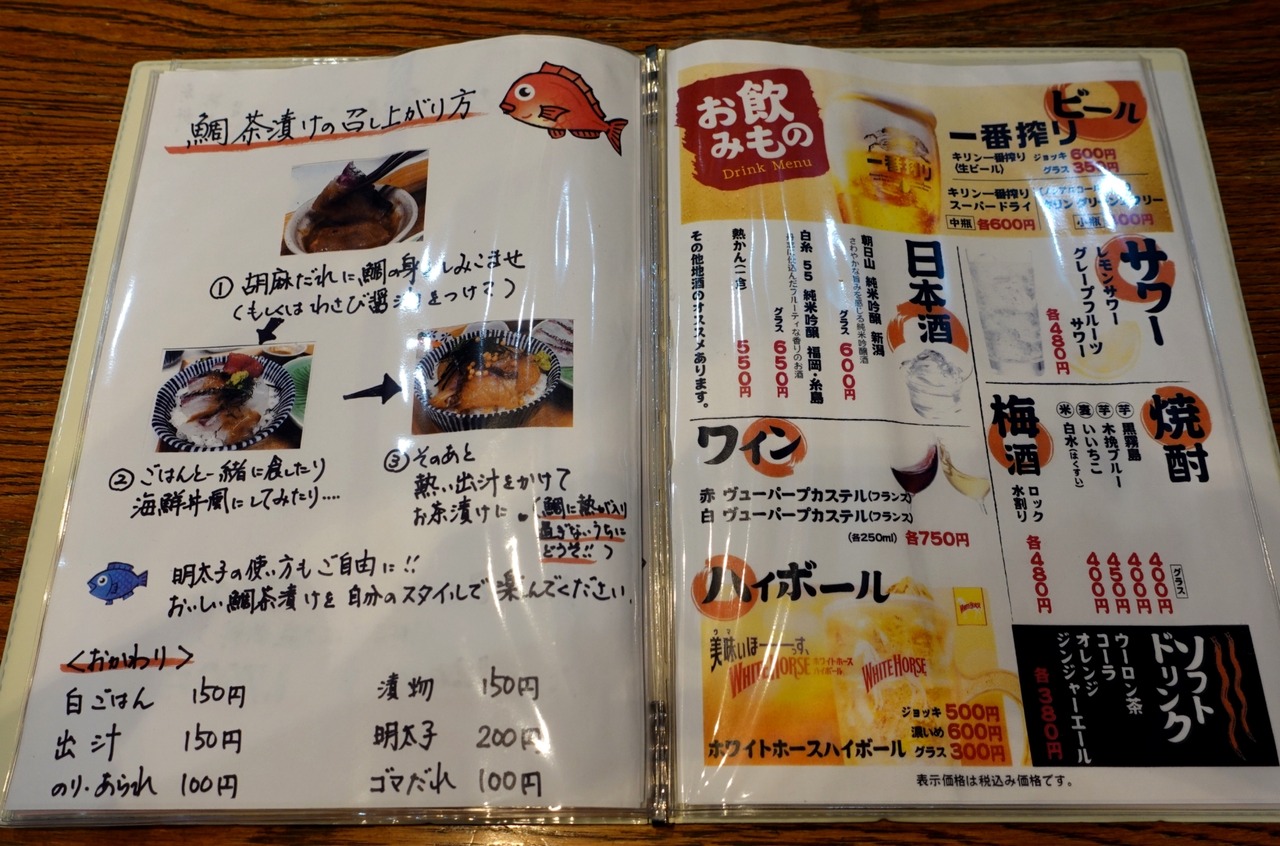 鯛茶漬けの召し上がり方
① 胡麻だれに鯛の身をしみこませ
(もしくはわさび醤油をつけて)
② ごはんと一緒に食したり
海鮮丼風にしてみたり....
③ そのあと
熱い出汁をかけて
お茶漬けに。
(鯛に熱が入り
過ぎないうちに
どうぞ!!)
明太子の使い方もご自由に!!
おいしい鯛茶漬けを自分のスタイルで楽んでください.
<おかわり>
白ごはん 150円
出汁 150円
のり・あられ 100円
漬物 150円
明太子 200円
ゴマだれ 100円
お飲みもの
Drink Menu
一番搾り
ビール
一番搾り
キリン一番搾り
(生ビール)
ジョッキ 600円
グラス 350円
キリン一番搾り
スーパードライ
中瓶 各600円
フリー
小瓶
00円
日本酒
朝日山 純米吟醸 新潟
さわやかな旨みを感じる純米吟醸酒
グラス 600円
白糸 55 純米吟醸 福岡・糸島
仕込んだフルーティな香りのお酒
グラス 650円
熱かん(二合) 550円
その他地酒のオススメあります。
サワー
レモンサワー
グレープフルーツ
サワー
各480円
焼酎
芋 黒霧島 400円
芋 木挽ブルー 400円
麦 いいちこ 450円
米 白水(はくすい) 400円
グラス
梅酒
ロック
水割り
各480円
ワイン
赤 ヴューパープカステル(フランス)
白 ヴューパープカステル(フランス)
(各250ml) 各750円
ハイボール
美味いほーーっす、
ウマ
WHITE HORSE
ホワイトホース
ハイボール
WHITE HORSE
ジョッキ 500円
濃いめ 600円
ホワイトホースハイボール グラス 300円
ソフト
ドリンク
ウーロン茶
コーラ
オレンジ
ジンジャーエール
各380円
表示価格は税込み価格です。